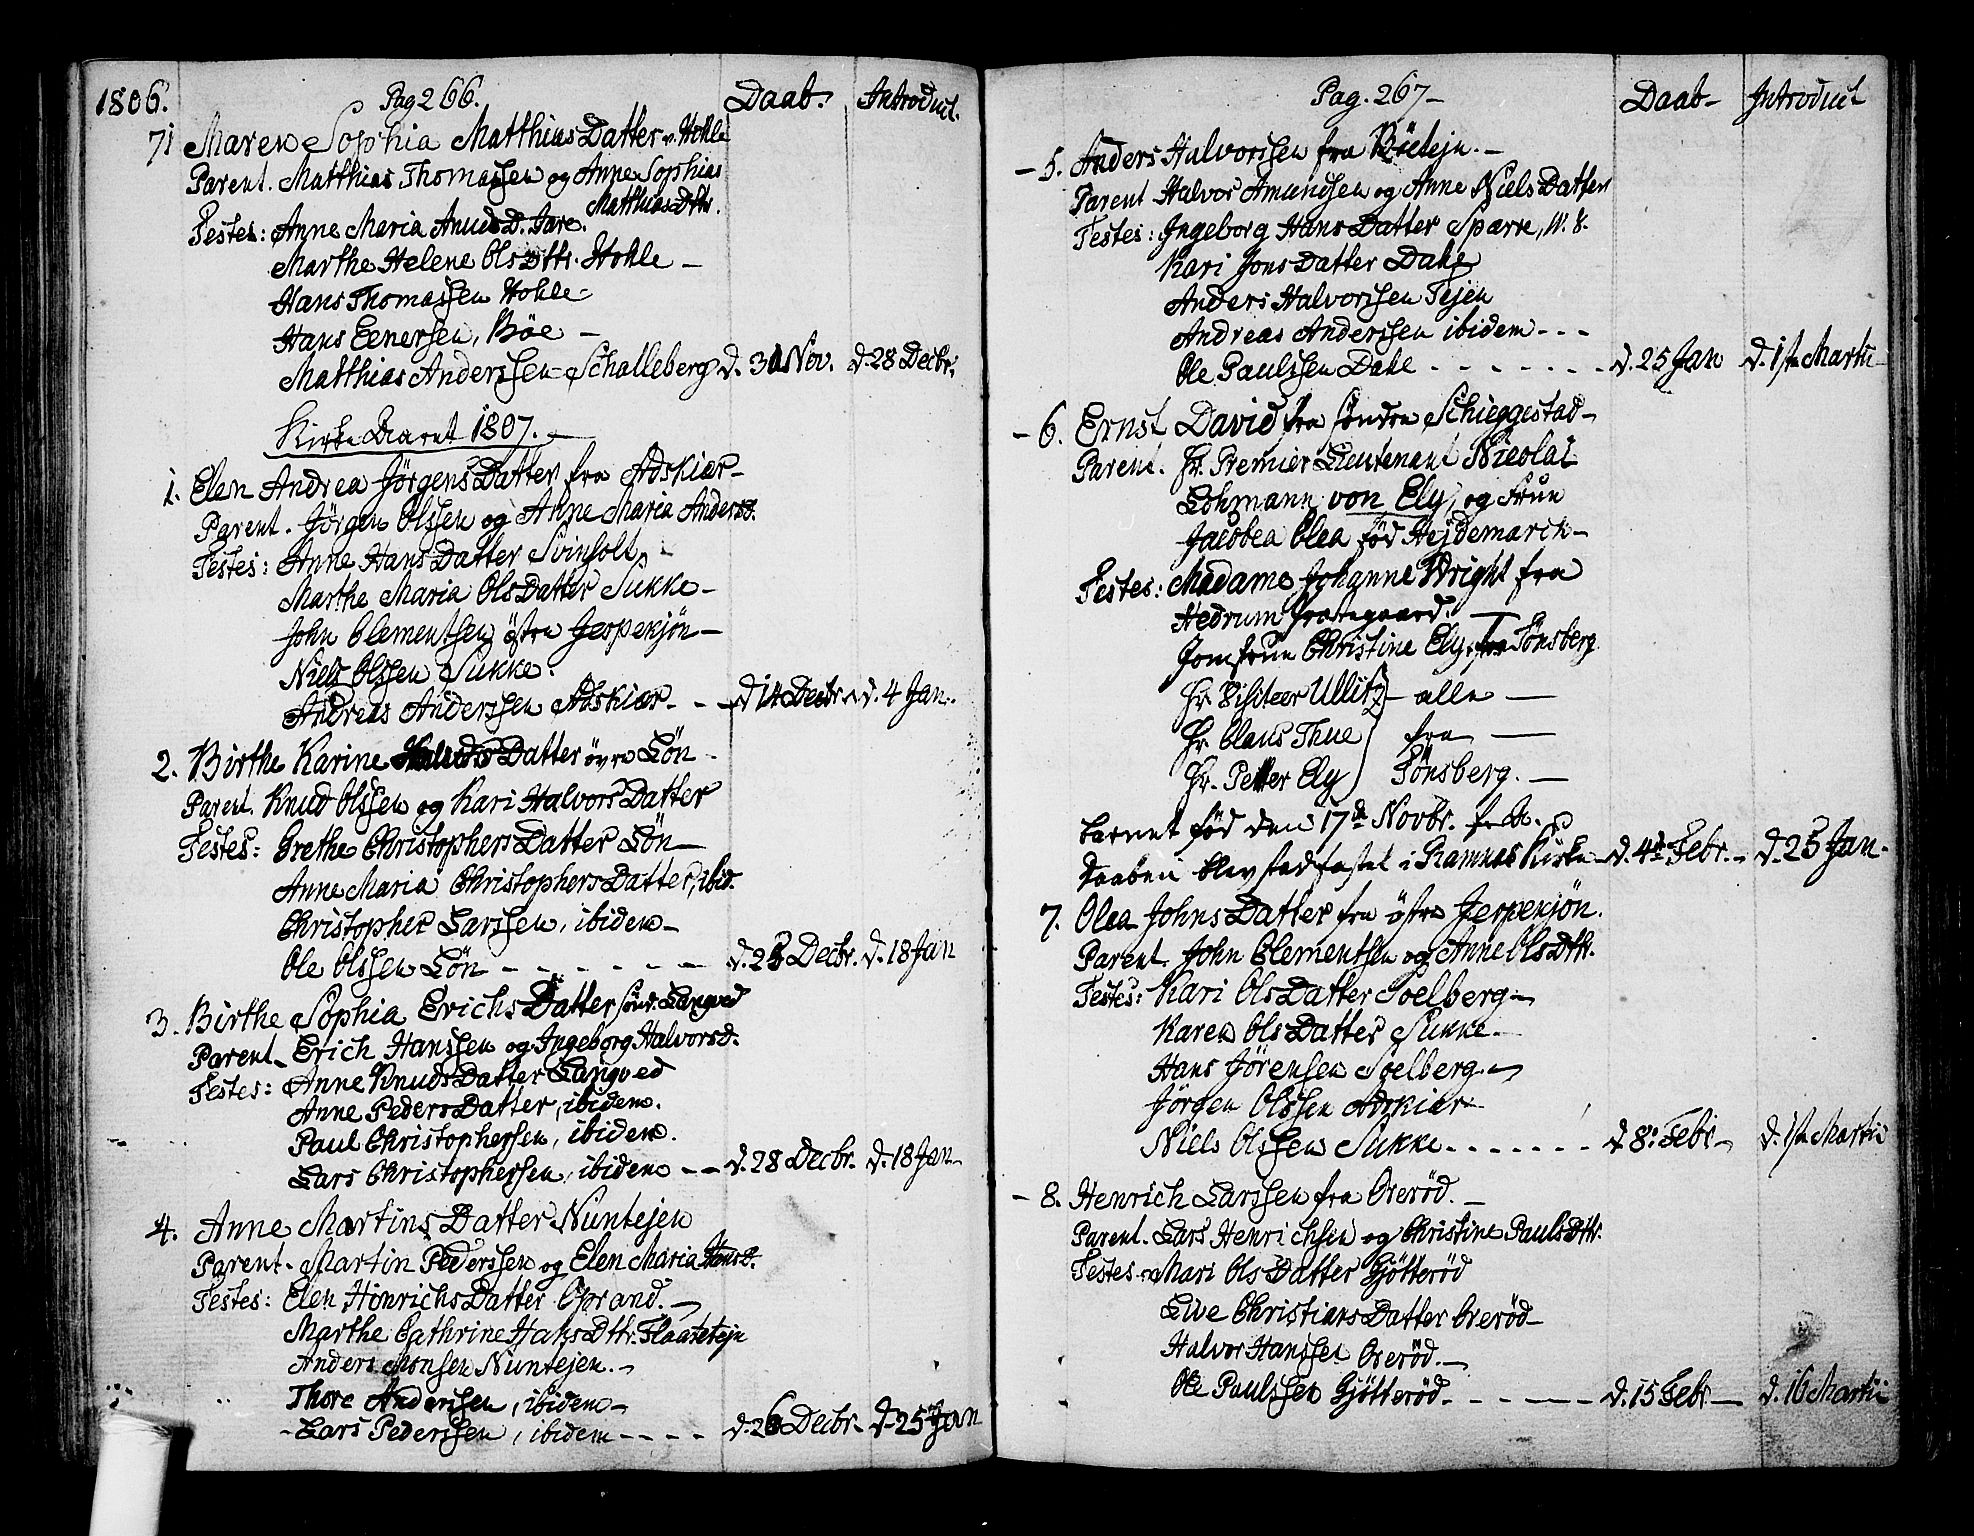 1806. Pag 266. Daab. Introduct.
71 Maren Sophia Matthias Datter v. Hohle
Parent. Matthias Thomassen og Anne Sophias
Matthias Dtr.
Testes: Anne Maria Anuds D. Jare.
Marthe Helene Ols Dttr. Hohle –
Hans Thomassen Hohle –
Hans Eenersen, Böe –
Matthias Anderssen Schalleberg d. 30 Nov. d. 28 Decbr.
Kirke Aaret 1807.
1. Elen Andrea Jörgens Datter fra Adskiær –
Parent. Jörgen Olssen og Anne Maria Andersd.
Testes: Anne Hans Datter Svinholt –
Marthe Maria Ols Datter Sukke –
John Clementsen östre Jespekjön –
Niels Olssen Sukke.
Andreas Anderssen Adskiær - - d. 14 Decbr. d. 4 Jan.
2. Birthe Karine Knuds Datter övre Lön –
Parent. Knud Olssen og Kari Halvors Datter
Testes: Grethe Christophers Datter Lön –
Anne Maria Christophers Datter, ibid.
Christopher Larssen, ibidem –
Ole Olssen Lön - - - - - - d. 25 Decbr. d. 18 Jan
3. Birthe Sophia Erichs Datter sönd. Langved
Parent. Erich Hanssen og Ingeborg Halvorsd.
Testes: Anne Knuds Datter Langved
Anne Peders Datter, ibidem.
Paul Christophersen, ibidem.
Lars Christophersen, ibidem - - d. 28 Decbr. d. 18 Jan –
4. Anne Martins Datter Nuntejen
Parent. Martin Pederssen og Elen Maria Hansd.
Testes: Elen Hinrichs Datter Oprand. –
Marthe Cathrine Hans Dttr. Flaatetejn
Anders Monsen Nuntejen. –
Thore Anderssen, ibidem –
Lars Pederssen, ibidem - - - - d. 26 Decbr. – d. 25 Jan
Pag. 267 – Daab – Introduct
– 5. Anders Halvorssen fra Böetejn. –
Parent Halvor Amundsen og Anne Niels Datter
Testes: Ingeborg Hans Datter Sparre, N. 8.
Kari Jons Datter Dahe
Anders Halvorssen Tejen
Andreas Anderssen ibidem - - -
Ole Paulssen Dahe - - - - - - - d. 25 Jan d. 1ste Martii –
– 6. Ernst David fra söndre Schieggestad –
Parent. Hr. Premier Lieutenant Nicolai
Lohmann von Ely, og Frue
Jacobea Olea föd Hejdemarck –
Testes: Madame Johanne Wright fra
Hedrum Prætegaard. –
Jomfrue Christine Ely, fra Tönsberg
Hr. Visiteer Ullitz – alle –
Hr. Claus Thue fra –
Hr. Petter Ely Tönsberg. –
Barnet föd den 17de Novbr.
Daaben blev stadfæstet i Ramnæs Kirke – d. 4de Febr. – d. 25 Jan.
7. Olea Johns Datter fra östre Jespekjön.
Parent. John Clementsen og Anne Ols Dttr.
Testes: Kari Ols Datter Soelberg –
Karen Ols Datter Sukke –
Hans Jörensen Soelberg –
Jörgen Olssen Adskiær
Niels Olssen Sukke - - - - - - - d. 8. Febr – d. 1ste Martii
– 8. Henrich Larssen fra Oreröd. –
Parent. Lars Henrichsen og Christine Pauls Dttr.
Testes. Mari Ols Datter Gjötteröd
Live Christians Datter Oreröd –
Halvor Hanssen Oreröd. –
Ole Paulssen Gjötteröd. - - - - d. 15 Febr – d. 16 Martii